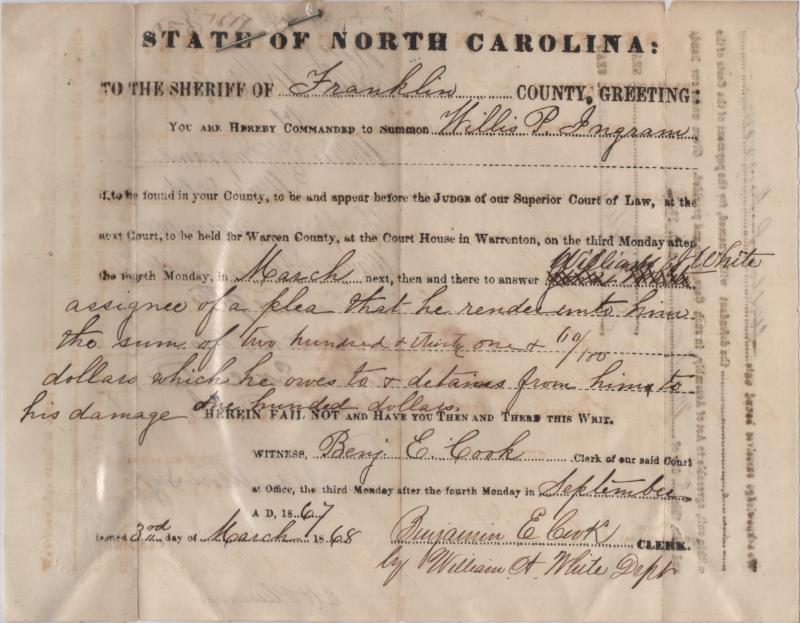 STATE OF NORTH CAROLINA:
TO THE SHERIFF OF Franklin COUNTY, GREETING:
YOU ARE HEREBY COMMANDED to SUMMON Willis P. Ingram
if to be found in your County, to be and appear before the JUDGE of our Superior Court of Law, at the
next Court, to be held for Warren County, at the Court House in Warrenton, on the third Monday after
the fourth Monday, in March next, then and there to answer William J White
assignee of a plea that he render unto him
the sum of two hundred & thirty one & 60/100
dollars which he owes to & detains from him & to
his damage one hundred dollars. HEREIN FAIL NOT AND HAVE YOU THEN AND THERE THIS WRIT.
WITNESS, Benj E Cook Clerk of our said Court
at Office, the third Monday after the fourth Monday in September
A D, 1867
Issued 3rd day of March 1868 Benjamin E Cook CLERK.
by William A. White Dept